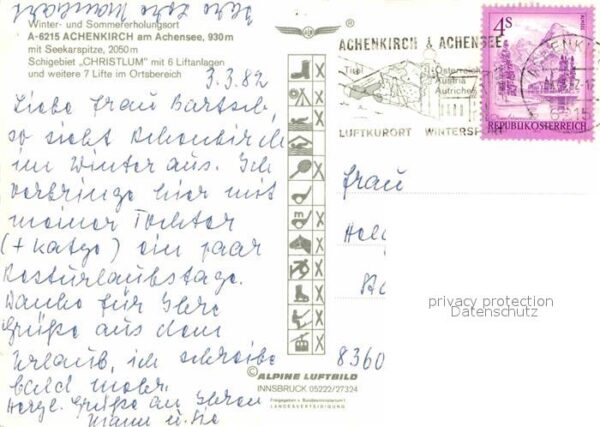 Winter- und Sommererholungsort
A-6215 ACHENKIRCH am Achensee, 930m
mit Seekarspitze, 2050m
Schigebiet „CHRISTLUM" mit 6 Liftanlagen
und weitere 7 Lifte im Ortsbereich
3.3.82
Liebe Frau Bartsch,
so sieht Achenkirch
im Winter aus. Ich
verbringe hier mit
meiner Tochter
(+ Katze) ein paar
Resturlaubstage.
Danke für Ihre
Grüße aus dem
Urlaub, ich schreibe
bald mehr.
Herzl. Grüße an Ihren
Mann u. Sie
Ihre
ALPINE LUFTBILD
INNSBRUCK 05222/27324
Freigegeben v. Bundesministerium f.
LANDESVERTEIDIGUNG
ACHENKIRCH A ACHENSEE
Tirol
Österreich
Austria
Autriche
LUFTKURORT WINTERSPORT
4S
REPUBLIK ÖSTERREICH
Frau
8360
privacy protection
Datenschutz